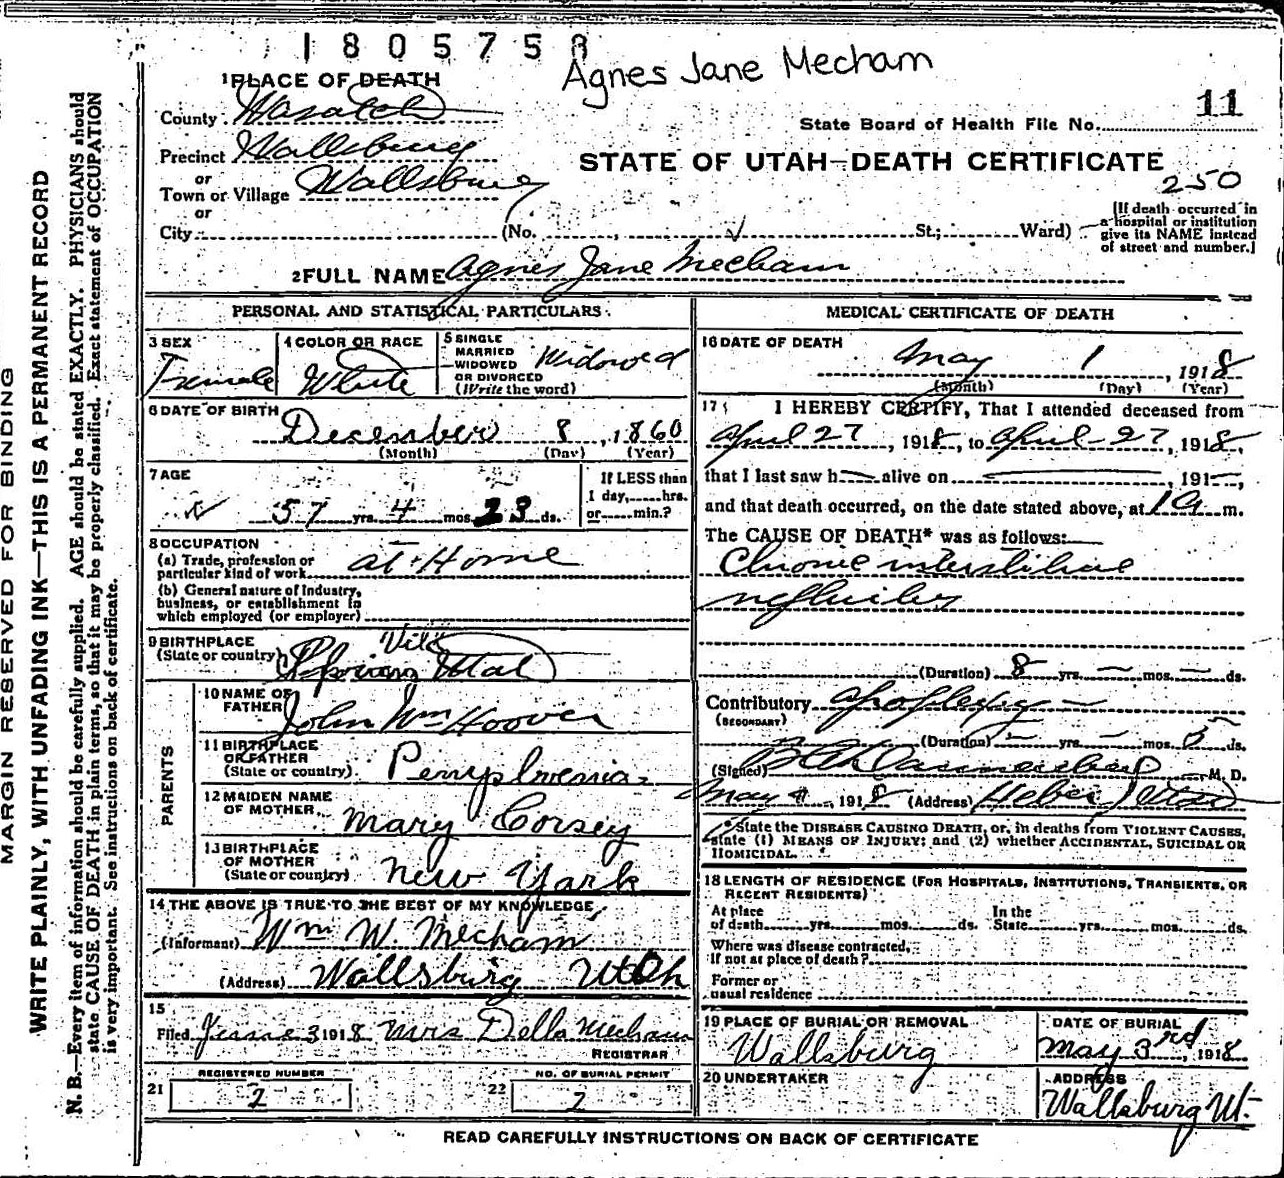 1805758
Agnes Jane Mecham
11
1 PLACE OF DEATH
County Wasatch
State Board of Health File No.
Precinct Wallsburg
STATE OF UTAH—DEATH CERTIFICATE
250
or
Town or Village Wallsburg
or
City (No. , St.; Ward)
[If death occurred in
a hospital or institution
give its NAME instead
of street and number.]
2 FULL NAME Agnes Jane Mecham
PERSONAL AND STATISTICAL PARTICULARS
3 SEX
Female
4 COLOR OR RACE
White
5 SINGLE
MARRIED
WIDOWED
OR DIVORCED
(Write the word)
Widowed
6 DATE OF BIRTH
December 8, 1860
(Month) (Day) (Year)
7 AGE
57 yrs. 4 mos. 23 ds.
If LESS than
1 day, hrs.
or min.?
8 OCCUPATION
(a) Trade, profession or
particular kind of work at Home
(b) General nature of Industry,
business, or establishment in
which employed (or employer)
9 BIRTHPLACE
(State or country) Utah
PARENTS
10 NAME OF
FATHER John Wm Hoover
11 BIRTHPLACE
OF FATHER
(State or country) Pennsylvania
12 MAIDEN NAME
OF MOTHER Mary Corsey
13 BIRTHPLACE
OF MOTHER
(State or country) New York
14 THE ABOVE IS TRUE TO THE BEST OF MY KNOWLEDGE
(Informant) Wm W. Mecham
(Address) Wallsburg Utah
15
Filed June 3 1918 Mrs Della Mecham
REGISTRAR
REGISTERED NUMBER
21 2
NO. OF BURIAL PERMIT
22 2
MEDICAL CERTIFICATE OF DEATH
16 DATE OF DEATH
May 1, 1918
(Month) (Day) (Year)
17 I HEREBY CERTIFY, That I attended deceased from
April 27, 1918, to April 27, 1918,
that I last saw h alive on , 191 ,
and that death occurred, on the date stated above, at 1 a m.
The CAUSE OF DEATH* was as follows:
Chronic interstitial
nephritis
(Duration) 8 yrs. — mos. — ds.
Contributory apoplexy
(SECONDARY)
(Duration) — yrs. — mos. 5 ds.
(Signed) M. D.
May 4, 1918 (Address) Heber Utah
*State the DISEASE CAUSING DEATH, or, in deaths from VIOLENT CAUSES,
state (1) MEANS OF INJURY; and (2) whether ACCIDENTAL, SUICIDAL OR
HOMICIDAL.
18 LENGTH OF RESIDENCE (FOR HOSPITALS, INSTITUTIONS, TRANSIENTS, OR
RECENT RESIDENTS)
At place
of death yrs. mos. ds.
In the
State yrs. mos. ds.
Where was disease contracted,
If not at place of death?
Former or
usual residence
19 PLACE OF BURIAL OR REMOVAL
Wallsburg
DATE OF BURIAL
May 3rd, 1918
20 UNDERTAKER
ADDRESS
Wallsburg Ut.
READ CAREFULLY INSTRUCTIONS ON BACK OF CERTIFICATE
MARGIN RESERVED FOR BINDING
WRITE PLAINLY, WITH UNFADING INK—THIS IS A PERMANENT RECORD
N. B.—Every item of information should be carefully supplied. AGE should be stated EXACTLY. PHYSICIANS should
state CAUSE OF DEATH in plain terms, so that it may be properly classified. Exact statement of OCCUPATION
is very important. See instructions on back of certificate.